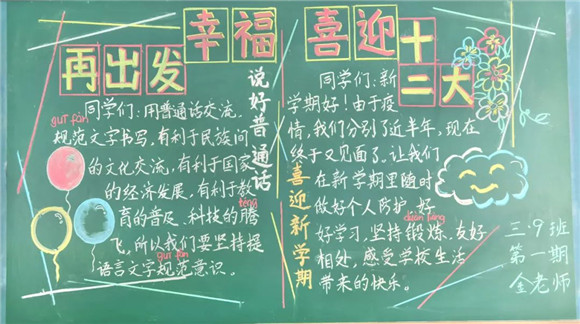 幸福
再出发
说好普通话
同学们：用普通话交流，
guī fàn
规范文字书写，有利于民族间
的文化交流，有利于国家
的经济发展，有利于教
téng
育的普及、科技的腾
飞，所以我们要坚持提
guī fàn
语言文字规范意识。
喜迎十
二大
喜迎新学期
同学们：新
学期好！由于疫
情，我们分别了近半年，现在
终于又见面了，让我们
在新学期里随时
做好个人防护，好
duàn liàn
好学习，坚持锻炼、友好
相处，感受学校生活
带来的快乐。
三.9班
第一期
金老师